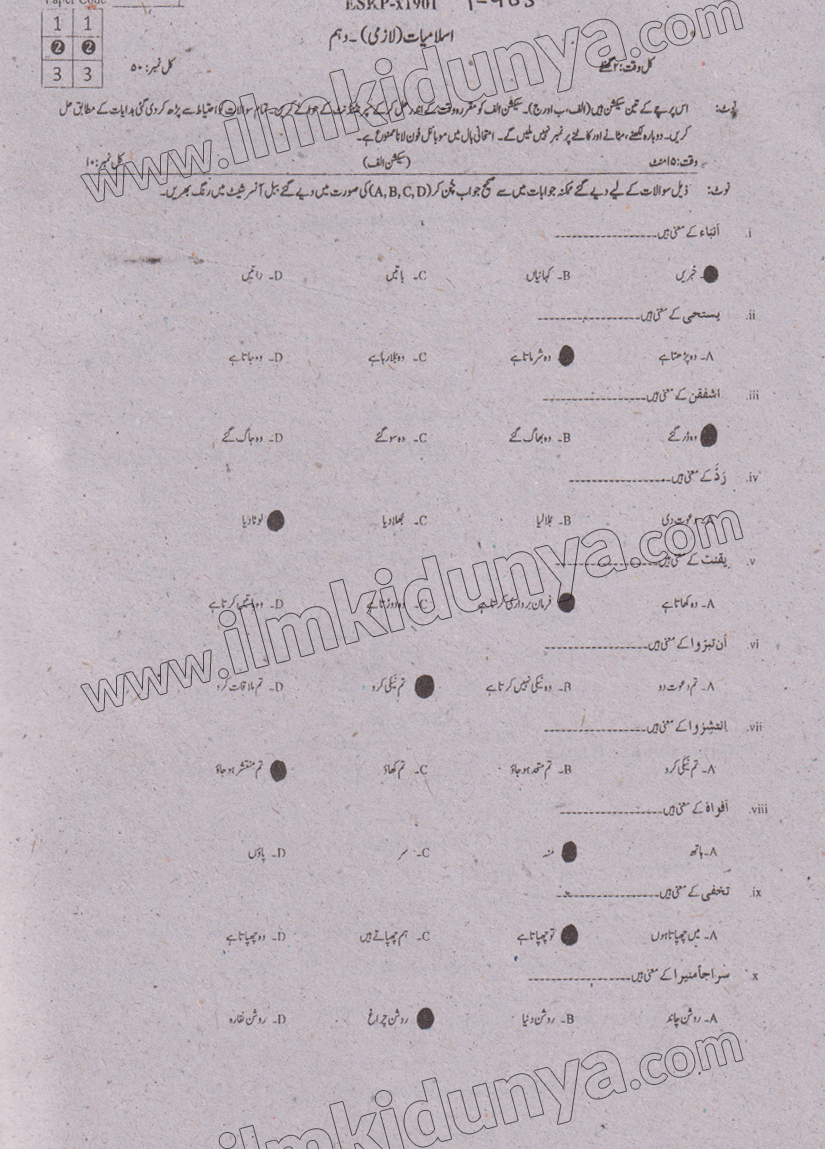 Paper Code
ESKP-x1901
1 1
2 2
3 3
اسلامیات (لازمی)۔ دہم
کل وقت: ۲ گھنٹے
کل نمبر: ۵۰
نوٹ: اس پرچے کے تین سیکشن ہیں (الف، ب اور ج)۔ سیکشن الف کو مقررہ وقت کے اندر حل کر کے سپرنٹنڈنٹ کے حوالے کریں۔ تمام سوالات کو احتیاط سے پڑھ کر دی گئی ہدایات کے مطابق حل
کریں۔ دوبارہ لکھنے، مٹانے اور کاٹنے پر نمبر نہیں ملیں گے۔ امتحانی ہال میں موبائل فون لانا ممنوع ہے۔
وقت: ۱۵ منٹ (سیکشن الف) کل نمبر: ۱۰
نوٹ: ذیل سوالات کے لیے دیے گئے ممکنہ جوابات میں سے صحیح جواب چُن کر (A, B, C, D) کی صورت میں دیے گئے ببل آنسر شیٹ میں رنگ بھریں۔
i. اَنْبَاء کے معنی ہیں
خبریں B۔ کہانیاں C۔ باتیں D۔ راتیں
ii. یستحی کے معنی ہیں
A۔ وہ پڑھتا ہے وہ شرماتا ہے C۔ وہ بلا رہا ہے D۔ وہ جاتا ہے
iii. اشفقن کے معنی ہیں
وہ ڈر گئے B۔ وہ بھاگ گئے C۔ وہ سو گئے D۔ وہ جاگ گئے
iv. رَدَّ کے معنی ہیں
A۔ دعوت دی B۔ بلا لیا C۔ بھلا دیا لوٹا دیا
v. یقنت کے معنی ہیں
A۔ وہ کھاتا ہے فرمان برداری کرتا ہے C۔ وہ دوڑتا ہے D۔ وہ باتیں کرتا ہے
vi. اَن تبرّوا کے معنی ہیں
A۔ تم دعوت دو B۔ وہ نیکی نہیں کرتا ہے تم نیکی کرو D۔ تم ملاقات کرو
vii. انتشرُوا کے معنی ہیں
A۔ تم نیکی کرو B۔ تم متحد ہو جاؤ C۔ تم کھاؤ تم منتشر ہو جاؤ
viii. اَفواہ کے معنی ہیں
A۔ ہاتھ منہ C۔ سر D۔ پاؤں
ix. تخفی کے معنی ہیں
A۔ میں چھپاتا ہوں تو چھپاتا ہے C۔ ہم چھپاتے ہیں D۔ وہ چھپاتا ہے
x. سراجاً منیرا کے معنی ہیں
A۔ روشن چاند B۔ روشن دنیا روشن چراغ D۔ روشن نظارہ
www.ilmkidunya.com
www.ilmkidunya.com
www.ilmkidunya.com